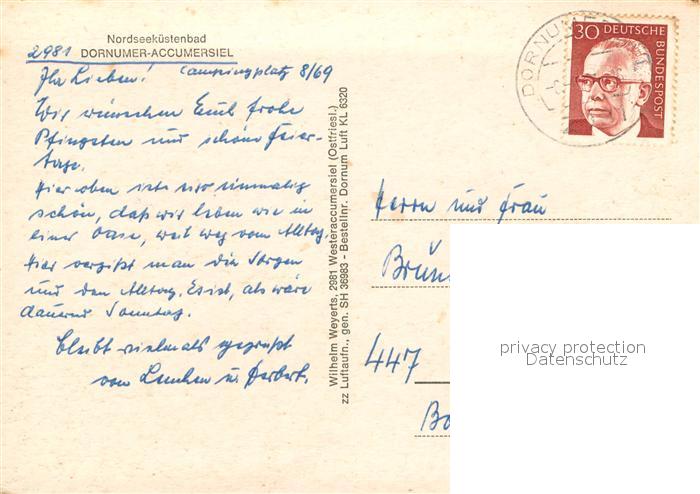 Nordseeküstenbad
2981 DORNUMER-ACCUMERSIEL
Ihr Lieben! Campingplatz 8/69
Wir wünschen Euch frohe
Pfingsten und schöne Feier-
tage.
Hier oben ists so einmalig
schön, daß wir leben wie in
einer Oase, weit weg vom Alltag.
Hier vergißt man die Sorgen
und den Alltag. Es ist, als wäre
dauernd Sonntag.
Bleibt vielmals gegrüßt
von u. Herbert.
Wilhelm Weyerts, 2981 Westeraccumersiel (Ostfriesl.)
zz Luftaufn., gen. SH 36983 - Bestellnr. Dornum Luft KL 6320
30 DEUTSCHE
BUNDESPOST
DORNUMER
Herrn und Frau
Brün
447
privacy protection
Datenschutz